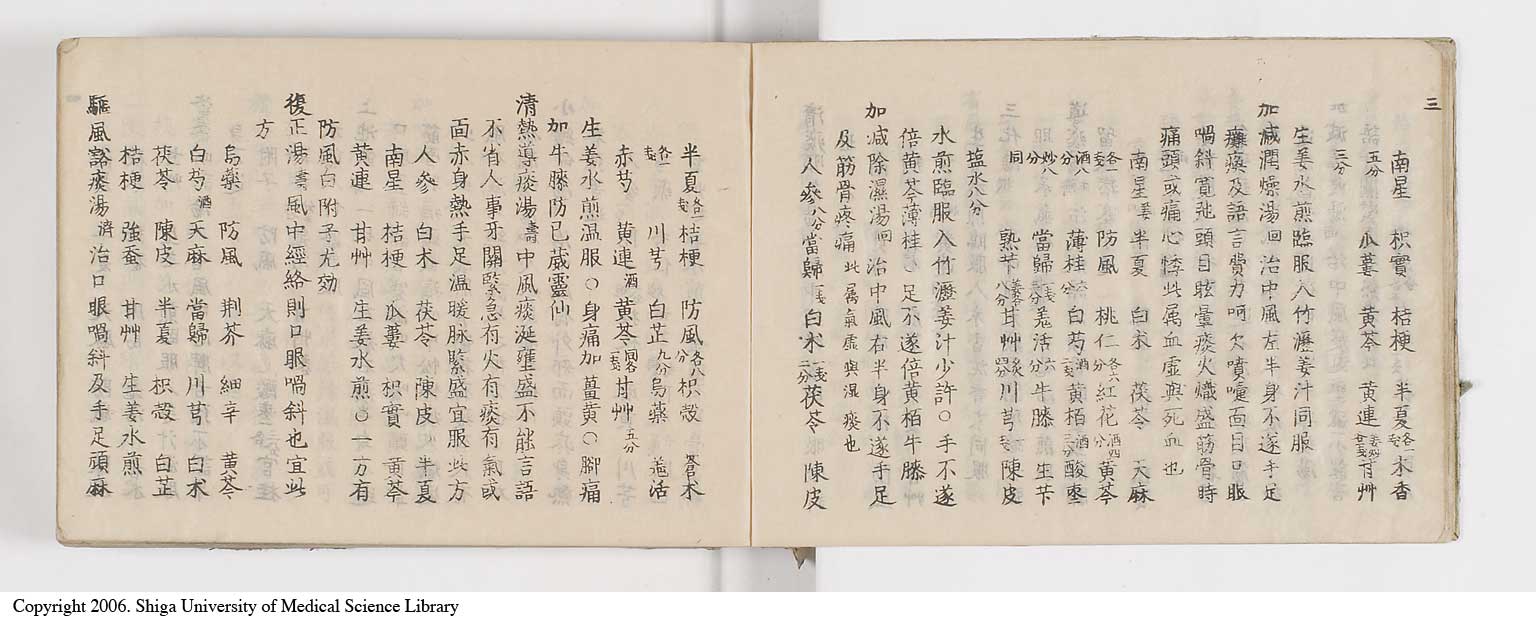 三
南星 枳實 桔梗 半夏各一戔 木香
五分 瓜蔞 黃芩 黃連姜炒廿戔 甘艸
三分
生姜水煎臨服入竹瀝姜汁同服
加減潤燥湯回治中風左半身不遂手足
癱瘓及語言費力呵欠噴嚏面目口眼
喎斜寬弛頭目眩暈痰火熾盛筋骨時
痛頭或痛心悸此属血虛與死血也
南星 半夏 白朮 茯苓 天麻
各一戔 防風 桃仁各六分 紅花酒四分 黃芩
酒八分 薄桂六分 白芍酒二戔 黃栢酒三分 酸棗
炒八分 當歸一戔二分 羌活六分 牛膝 生芐
同 熟芐姜八分 甘艸炙四分 川芎戔 陳皮
塩水八分
水煎臨服入竹瀝姜汁少許○手不遂
倍黃芩薄桂○足不遂倍黃栢牛膝
加減除濕湯回治中風右半身不遂手足
及筋骨疼痛此属氣虛與濕痰也
人參八分 當歸一戔 白朮一戔二分 茯苓 陳皮
半夏各一戔 桔梗 防風各八分 枳殼 蒼朮
各一戔 川芎 白芷九分 烏藥 羌活
赤芍 黃連酒 黃芩同各一戔 甘艸五分
生姜水煎温服○身痛加薑黃○腳痛
加牛膝防已威靈仙
清熱導痰湯壽中風痰涎壅盛不能言語
不省人事牙關緊急有火有痰有氣或
面赤身熱手足温暖脉緊盛宜服此方
人參 白朮 茯苓 陳皮 半夏
南星 桔梗 瓜蔞 枳實 黃芩
黃連 甘艸 生姜水煎○一方有
防風白附子尤効
復正湯壽風中經絡則口眼喎斜也宜此
方
烏藥 防風 荆芥 細辛 黃芩
白芍酒 天麻 當歸 川芎 白朮
茯苓 陳皮 半夏 枳殼 白芷
桔梗 強蚕 甘艸 生姜水煎
驅風豁痰湯濟治口眼喎斜及手足頑麻
Copyright 2006. Shiga University of Medical Science Library